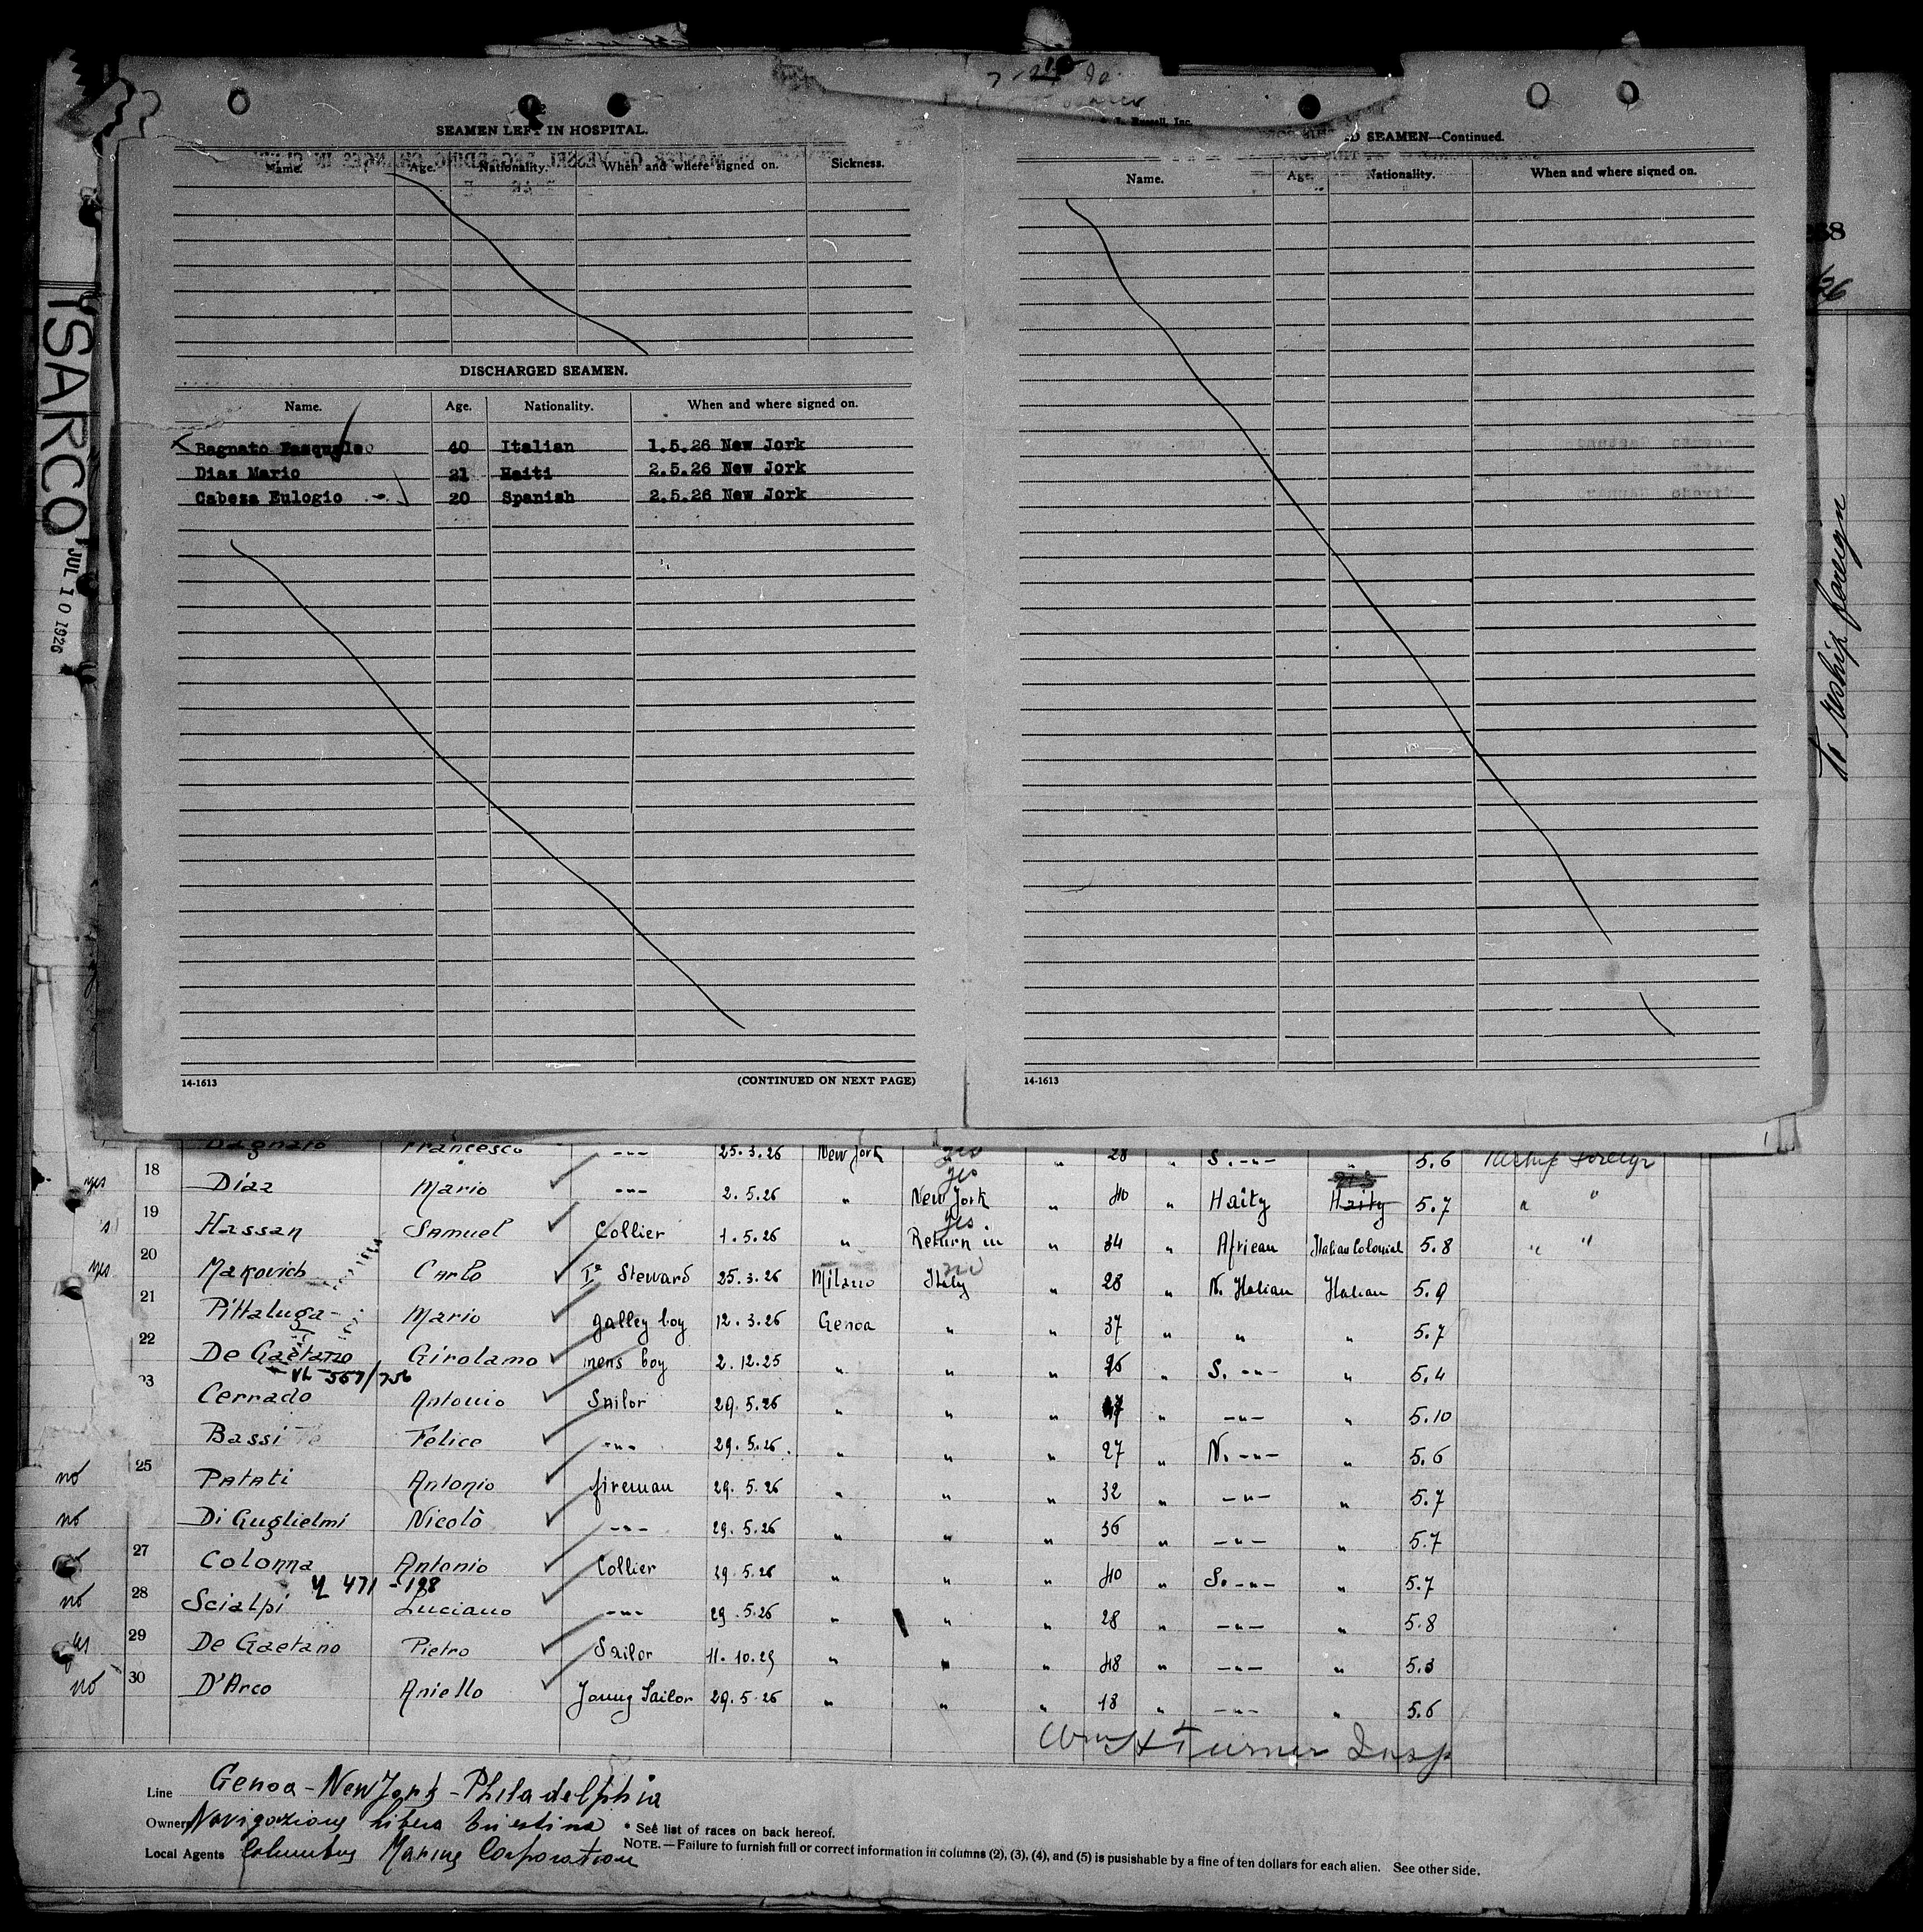 ISARCO
JUL 10 1926
SEAMEN LEFT IN HOSPITAL.
Name. Age. Nationality. When and where signed on. Sickness.
DISCHARGED SEAMEN.
Name. Age. Nationality. When and where signed on.
Bagnato Pasquale 40 Italian 1.5.26 New Jork
Diaz Mario 21 Haiti 2.5.26 New Jork
Cabeza Eulogio 20 Spanish 2.5.26 New Jork
14-1613 (CONTINUED ON NEXT PAGE)
SEAMEN—Continued.
Name. Age. Nationality. When and where signed on.
14-1613
To reship foreign
Bagnato Francesco -"- 25.3.26 New Jork yes " 28 " S. -"- " 5.6 Reship foreign
yes 18 Diaz Mario -"- 2.5.26 " yes New Jork " 40 " Haity Haity 5.7 " "
19 Hassan Samuel Collier 1.5.26 " yes Return in " 34 " African Italian Colonial 5.8 " "
yes 20 Makovich Carlo Iº Steward 25.3.26 Milano Italy " 28 " N. Italian Italian 5.9
21 Pittaluga Mario galley boy 12.3.26 Genoa " " 37 " " " 5.7
22 De Gaetano Girolamo mens boy 2.12.25 " " " 26 " S. -"- " 5.4
VL-567/756
23 Cerrado Antonio Sailor 29.5.26 " " " " -"- " 5.10
Bassi Felice -"- 29.5.26. " " " 27 " N. -"- " 5.6
no 25 Patati Antonio fireman 29.5.26 " " " 32 " -"- " 5.7
no Di Guglielmi Nicolò -"- 29.5.26 " " " 36 " -"- " 5.7
27 Colonna Antonio Collier 29.5.26 " " " 40 " S. -"- " 5.7
471-198
no 28 Scialpi Luciano -"- 29.5.26 " " " 28 " -"- " 5.8
yes 29 De Gaetano Pietro Sailor 11.10.25 " " " 48 " -"- " 5.3
no 30 D'Arco Aniello Joung Sailor 29.5.26 " " " 18 " -"- " 5.6
Wm H Turner Insp
Line Genoa - New Jork - Philadelphia
Owners Navigazione Libera Triestina * See list of races on back hereof.
Local Agents Columbus Marine Corporation NOTE.—Failure to furnish full or correct information in columns (2), (3), (4), and (5) is pusishable by a fine of ten dollars for each alien. See other side.